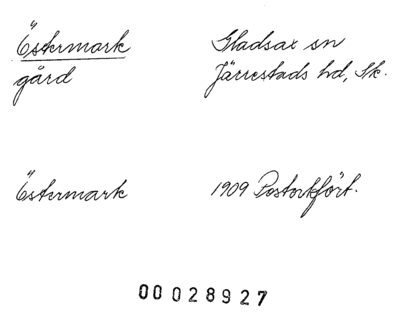 Östermark Gladsax sn
gård Järrestads hd, Sk.
Östermark 1909 Postortfört.
00028927